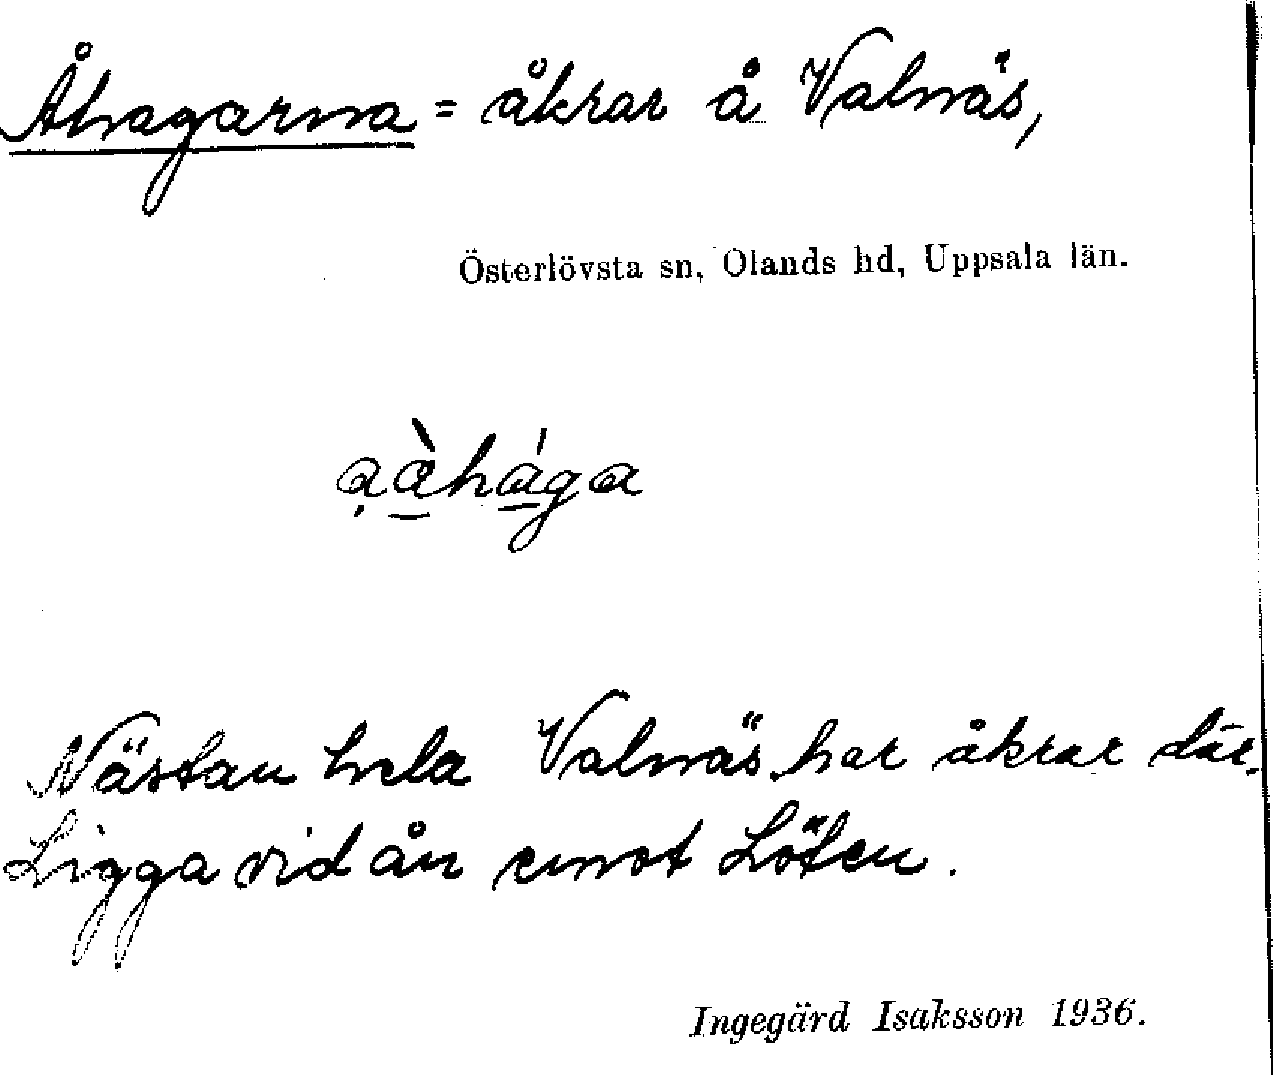 Åhagarna = åkrar å Valnäs,
Österlövsta sn, Olands hd, Uppsala län.
a̩àhága
Nästan hela Valnäs har åkrar där.
Ligga vid ån emot Löten.
Ingegärd Isaksson 1936.